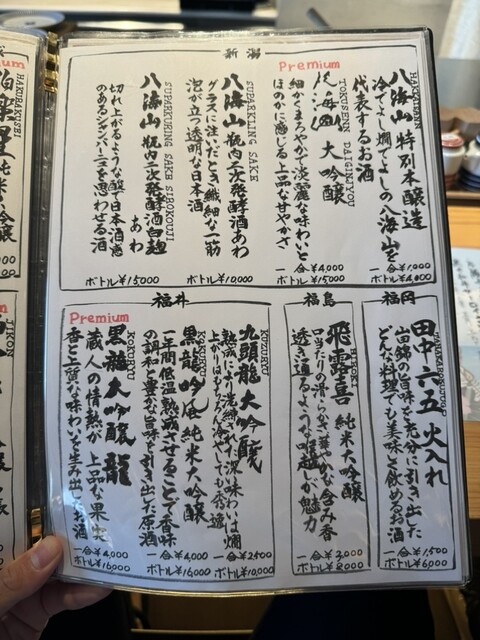 新潟
HAKKAISAN
八海山 特別本醸造
冷でよし燗でよしの八海山を
代表するお酒
一合¥1,000
ボトル¥4,000
Premium
TOKUSENN DAIGINJYOU
八海山 大吟醸
細かくまろやかで淡麗な味わいと
ほのかに感じる上品な甘やかさ
一合¥4,000
ボトル¥15000
SUPARKLING SAKE
八海山 瓶内二次発酵酒あわ
グラスに注いだとき、繊細な一筋
泡が立つ透明な日本酒
ボトル¥10,000
SUPARKURING SAKE SIROKOUJI
八海山 瓶内二次発酵酒白麹
あわ
切れ上がるような酸が日本酒感
のあるシャンパーニュを思わせる酒
ボトル¥15000
福岡
TANAKAROKUJUGO
田中六五 火入れ
山田錦の旨味を充分に引き出した
どんな料理でも美味く飲めるお酒
一合¥1,500
ボトル¥6,000
福島
HIROKI
飛露喜 純米大吟醸
口当たりの滑らかさ華やかな含み香
透き通るような
が魅力
一合¥3,000
ボトル¥8000
福井
KUZURYU
九頭龍 大吟醸
熟成により洗練された深い味わいは燗
上がりはもちろん冷やしても秀逸
一合¥2500
ボトル¥10,000
KOKURYU
黒龍吟風 純米大吟醸
一年間低温熟成させることで香味
の調和と豊かな旨味を引き出した原酒
一合¥4,000
ボトル¥16000
Premium
KOKURYU
黒龍 大吟醸 龍
蔵人の情熱が上品な果実
香と上質な味わいを生み出したお酒
一合¥4,000
ボトル¥16,000
Premium
HAKUBAKUSEI
純米吟醸
JIKON